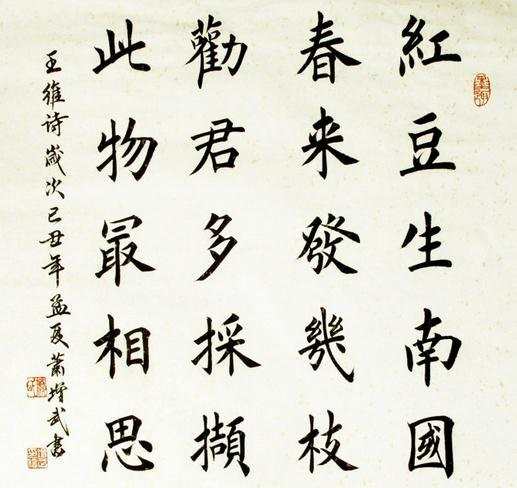 紅豆生南國
春来發幾枝
勸君多採擷
此物最相思
王維诗歲次己丑年孟夏萧增武書